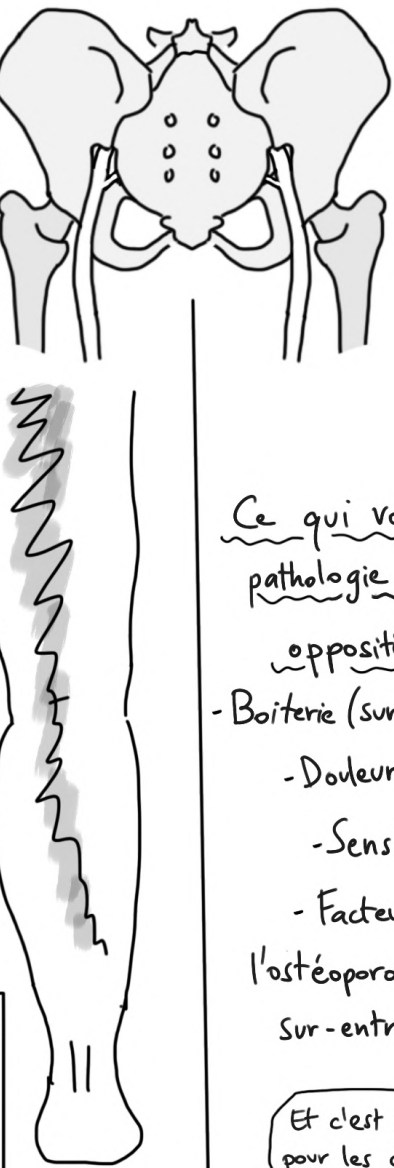 Ce qui
pathologie
- Boiterie (sur
- Douleur
- Sens
- Facteu
l'ostéoporo
sur-entr
Et c'est
pour les